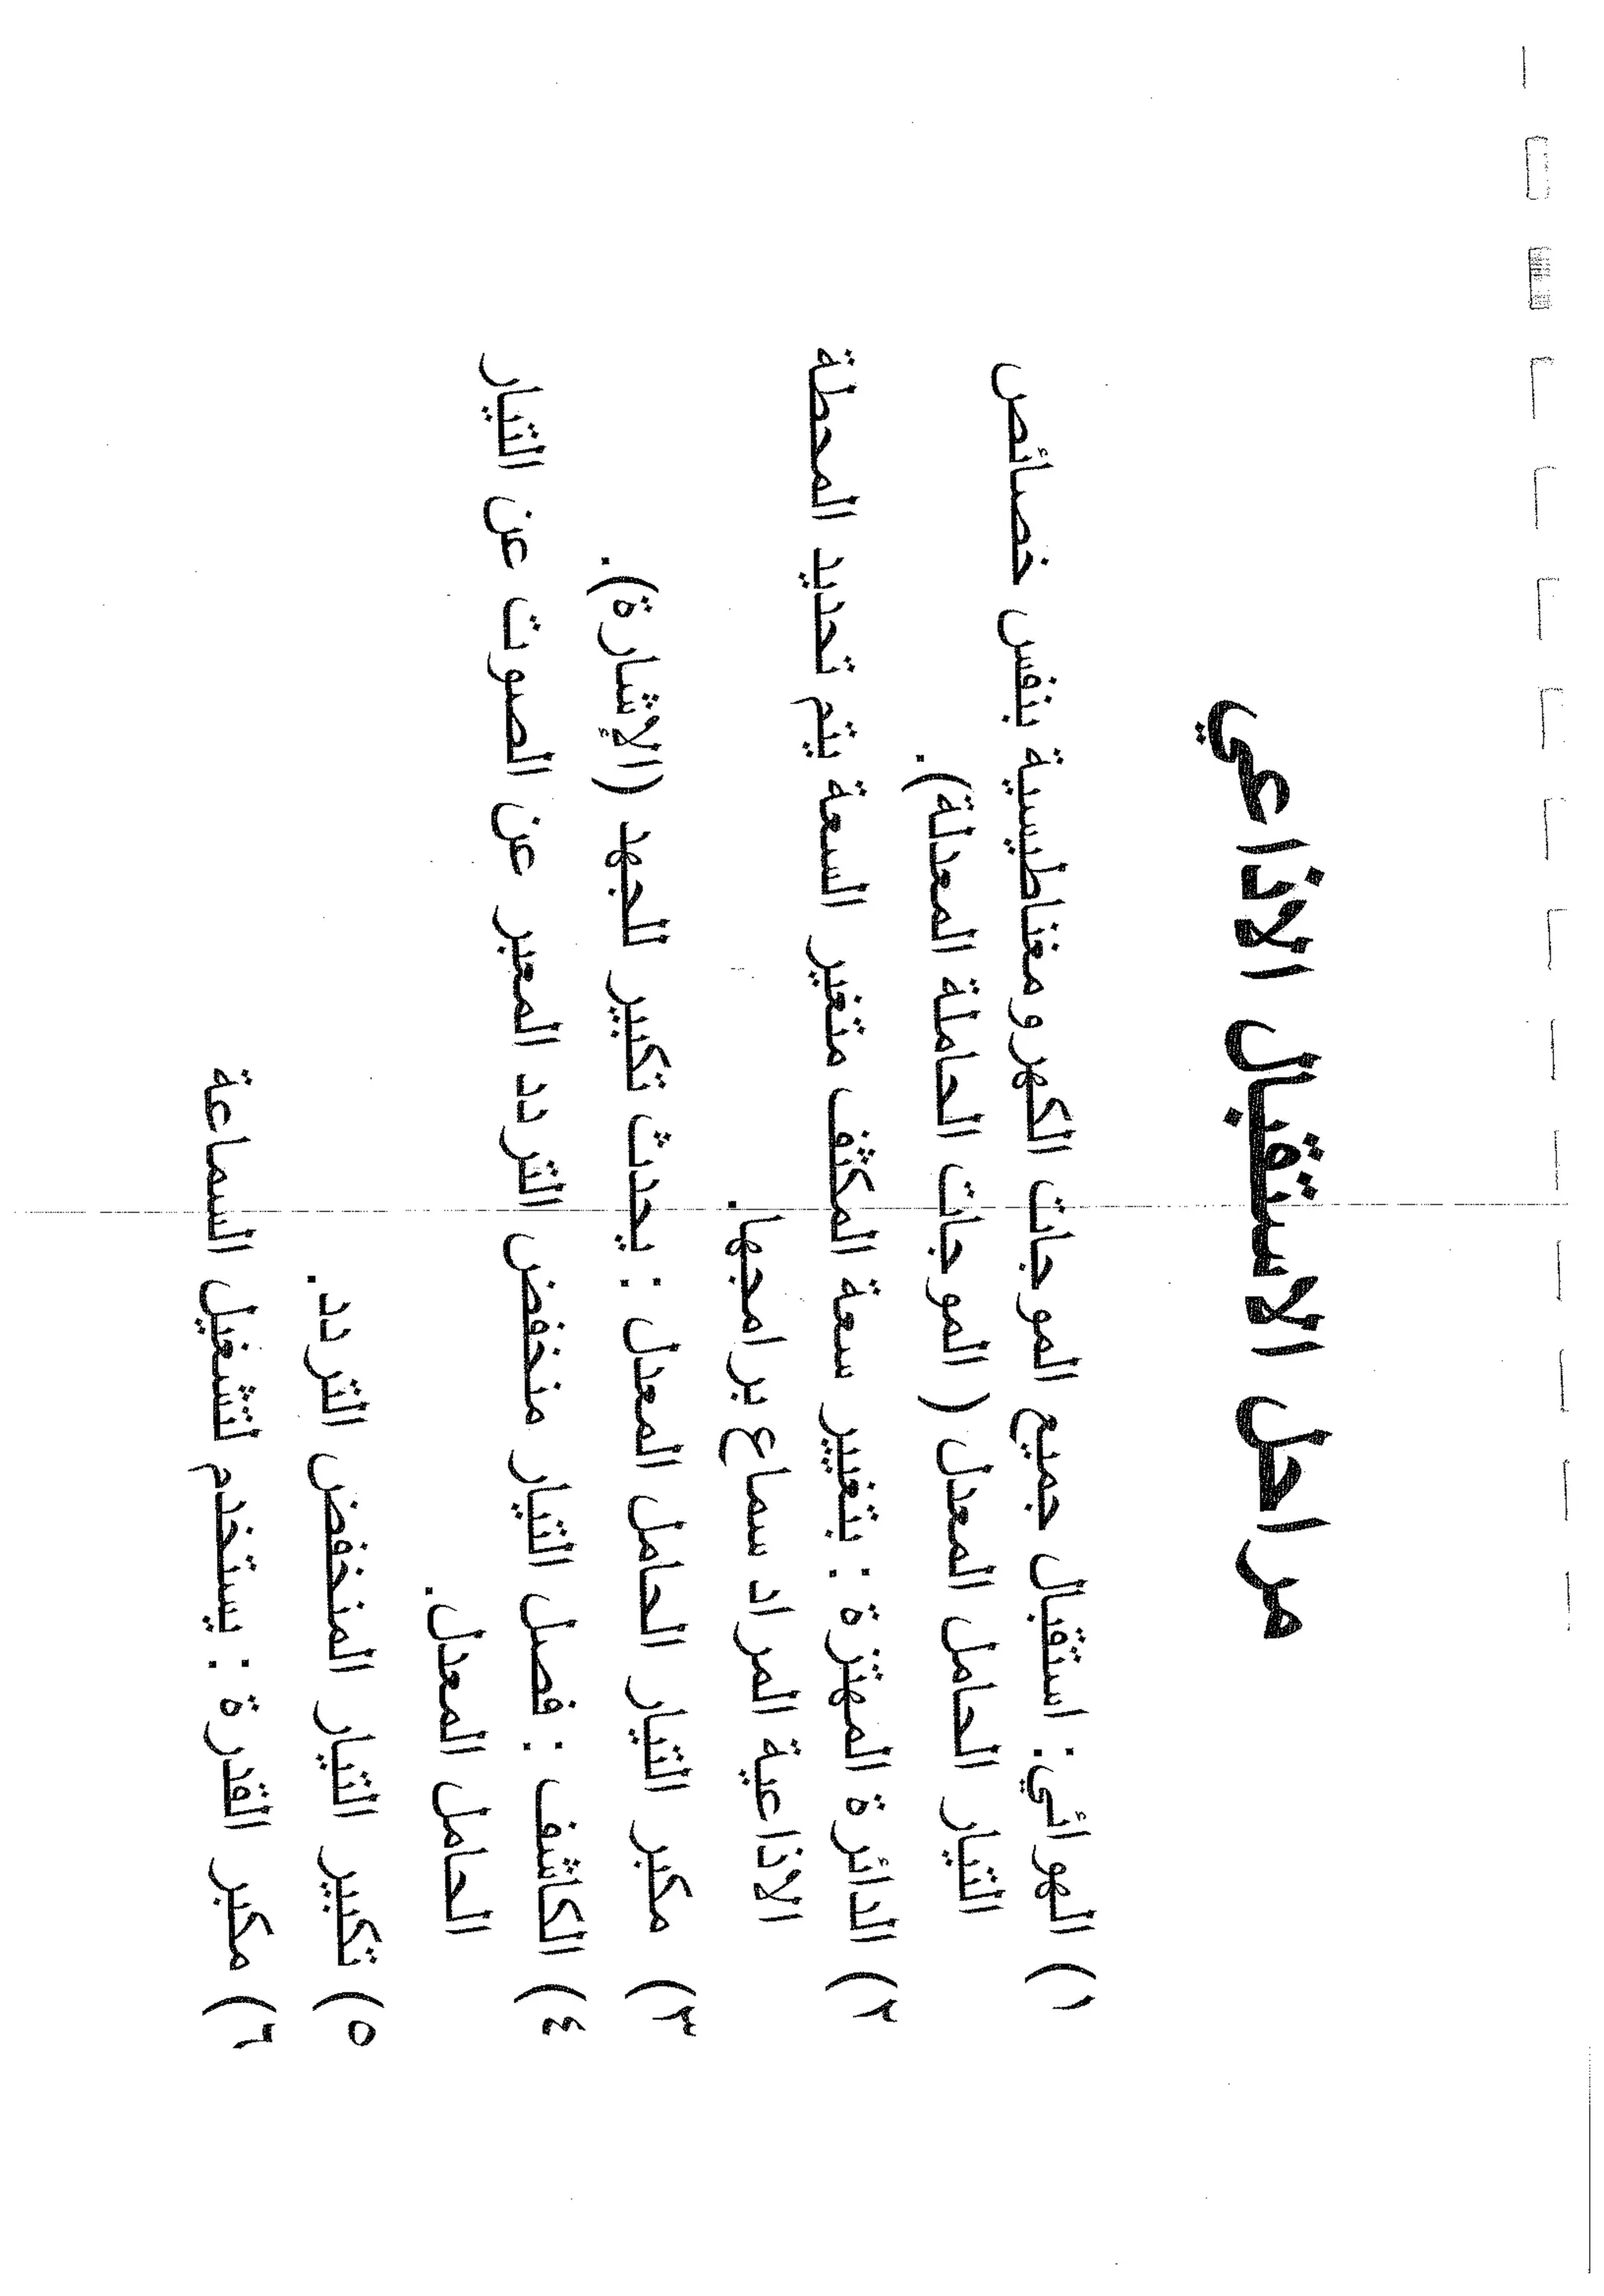 مراحل الاستقبال الاذاعي
١) الهوائي: استقبال جميع الموجات الكهرومغناطيسية بنفس خصائص
التيار الحامل المعدل ( الموجات الحاملة المعدلة).
٢) الدائرة المهتزة : بتغيير سعة المكثف متغير السعة يتم تحديد المحطة
الاذاعية المراد سماع برامجها.
٣) مكبر التيار الحامل المعدل : يحدث تكبير للجهد (الإشارة).
٤) الكاشف : فصل التيار منخفض التردد المعبر عن الصوت عن التيار
الحامل المعدل.
٥) تكبير التيار المنخفض التردد.
٦) مكبر القدرة : يستخدم لتشغيل السماعة